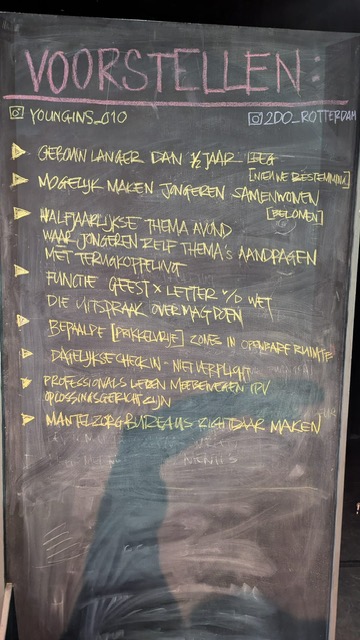 VOORSTELLEN:
YOUNGINS_010
2DO_ROTTERDAM
GEBOUW LANGER DAN ½ JAAR LEEG
[NIEUWE BESTEMMING]
MOGELYK MAKEN JONGEREN SAMENWONEN
[BELONEN]
HALFJAARLYKSE THEMA AVOND
WAAR JONGEREN ZELF THEMA'S AANDRAGEN
MET TERUGKOPPELING
FUNCTIE GEEST X LETTER V/D WET
DIE UITSPRAAK OVER MAG DOEN
BEPAALDE [PRIKKELVRIJE] ZONES IN OPENBARE RUIMTES
DAGELYKSE CHECK IN - NIET VERPLICHT
PROFESSIONALS LEREN MEEBEWEGEN IPV
OPLOSSINGSGERICHT ZIJN
MANTELZORGBUREAUS ZICHTBAAR MAKEN